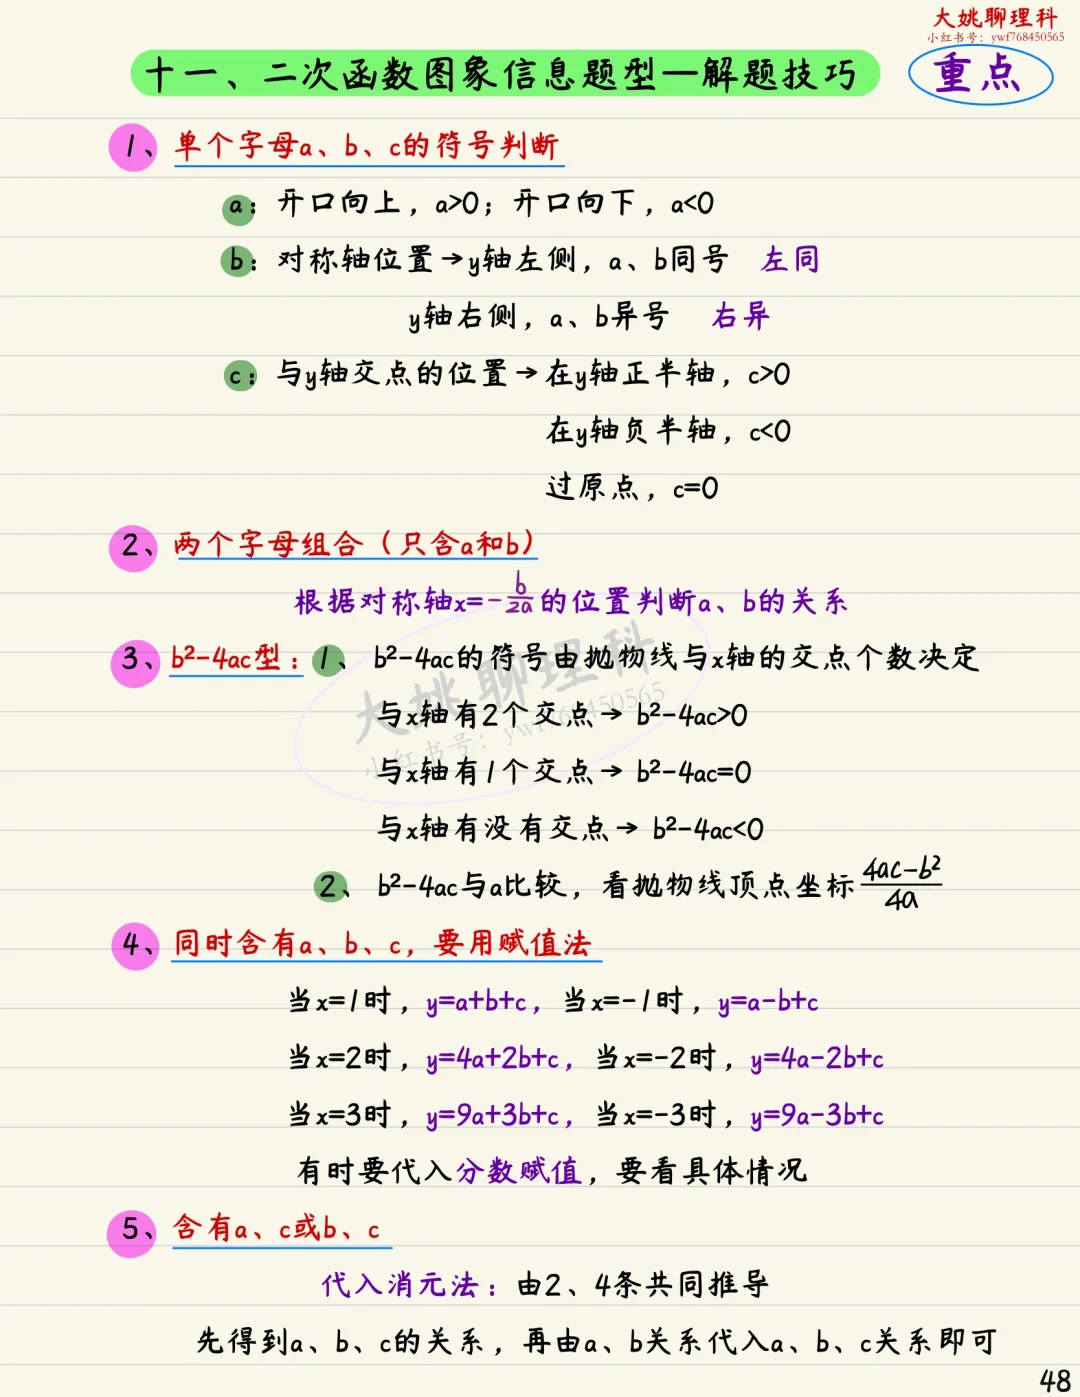 大姚聊理科
小红书号：ywf768450565
十一、二次函数图象信息题型—解题技巧 重点
1、单个字母a、b、c的符号判断
a：开口向上，a>0；开口向下，a<0
b：对称轴位置→y轴左侧，a、b同号 左同
y轴右侧，a、b异号 右异
c：与y轴交点的位置→在y轴正半轴，c>0
在y轴负半轴，c<0
过原点，c=0
2、两个字母组合（只含a和b）
根据对称轴x=-b/2a的位置判断a、b的关系
3、b²-4ac型：1、b²-4ac的符号由抛物线与x轴的交点个数决定
大姚聊理科
与x轴有2个交点→b²-4ac>0
小红书号：ywf768450565
与x轴有1个交点→b²-4ac=0
与x轴有没有交点→b²-4ac<0
2、b²-4ac与a比较，看抛物线顶点坐标(4ac-b²)/4a
4、同时含有a、b、c，要用赋值法
当x=1时，y=a+b+c，当x=-1时，y=a-b+c
当x=2时，y=4a+2b+c，当x=-2时，y=4a-2b+c
当x=3时，y=9a+3b+c，当x=-3时，y=9a-3b+c
有时要代入分数赋值，要看具体情况
5、含有a、c或b、c
代入消元法：由2、4条共同推导
先得到a、b、c的关系，再由a、b关系代入a、b、c关系即可
48